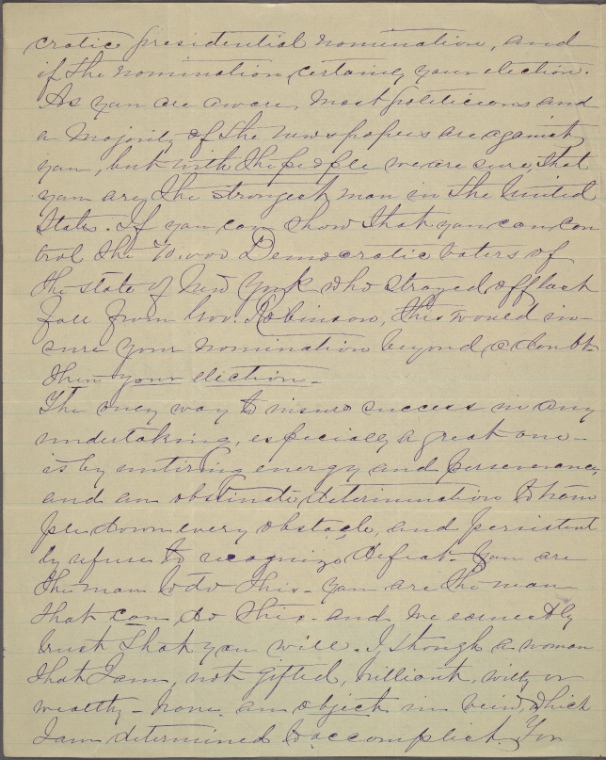 cratic presidential nomination, and
if the nomination, certainly your election.
As you are aware, most politicians and
a majority of the newspapers are against
you, but with the people we are sure, that
you are the strongest man in the United
States. If you can show that you can con
trol the 70.000 Democratic voters of
the state of New York who strayed off last
fall from Gov. Robinson, this would in-
sure your nomination beyond a doubt
then your election -
The only way to insure success in any
undertaking, especially a great one -
is by untiring energy and perseverance,
and an obstinate, determination to tram
ple down every obstacle, and persistent
ly refuse to recognize defeat - You are
the man to do this - you are the man
that can, do this - and we earnestly
trust that you will. I though a woman
that I am, not gifted, brilliant, witty or
wealthy - have an object in view, which
I am determined to accomplish. You